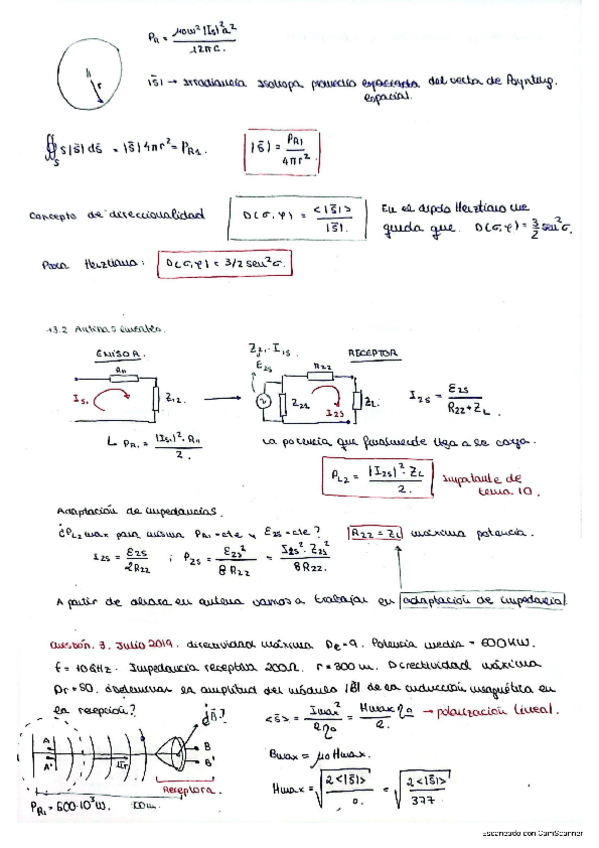 P_R1 = μ0ω²|Is|²a² / 12πc.
r
|S̄| → Irradiancia isotropa promedio espacial del vector de Poynting.
∯_S |S̄| ds = |S̄| 4πr² = P_R1.   |S̄| = P_R1 / 4πr²
Concepto de direccionalidad   D(σ, φ) = <|S̄|> / |S̄|.   En el dipolo Hertziano
queda que D(σ, φ) = 3/2 sen²σ.
Para Hertziano: D(σ, φ) = 3/2 sen²σ.
13.2 Antenas lineales.
EMISOR.   Z21·I1S   RECEPTOR
R11   E2S   R22
IS1   Z12   Z21   I2S   ZL   I2S = E2S / R22 + ZL.
P_R1 = |IS1|²·R11 / 2.   La potencia que finalmente llega a la carga.
P_L2 = |I2S|²·ZL / 2.   Importante de tema 10.
Adaptación de impedancias.
¿P_L2 max para misma P_R1 = cte y E2S = cte?   R22 = ZL   máxima potencia.
I2S = E2S / 2R22 ; P2S = E2S² / 8R22 = I2S²·Z2S² / 8R22.
A partir de ahora en antena vamos a trabajar en adaptación de impedancia
Cuestión. 3. Julio 2019. directividad máxima De = 9. Potencia media = 600KW.
f = 10GHz. Impedancia receptora 200Ω. r = 300m. Directividad máxima
Dr = 50. ¿Determinar la amplitud del módulo |B̄| de la inducción magnética en
la recepción?
¿B̄?   <S> = Imax² / 2η0 = Hmax η0 / 2. → polarización lineal.
A   A'   ūr   B   B'
Bmax = μ0Hmax.
Receptora.
P_R1 = 600·10³W.   Hmax = √(2<|S|> / 0.) = √(2<|S|> / 377)
Escaneado con CamScanner